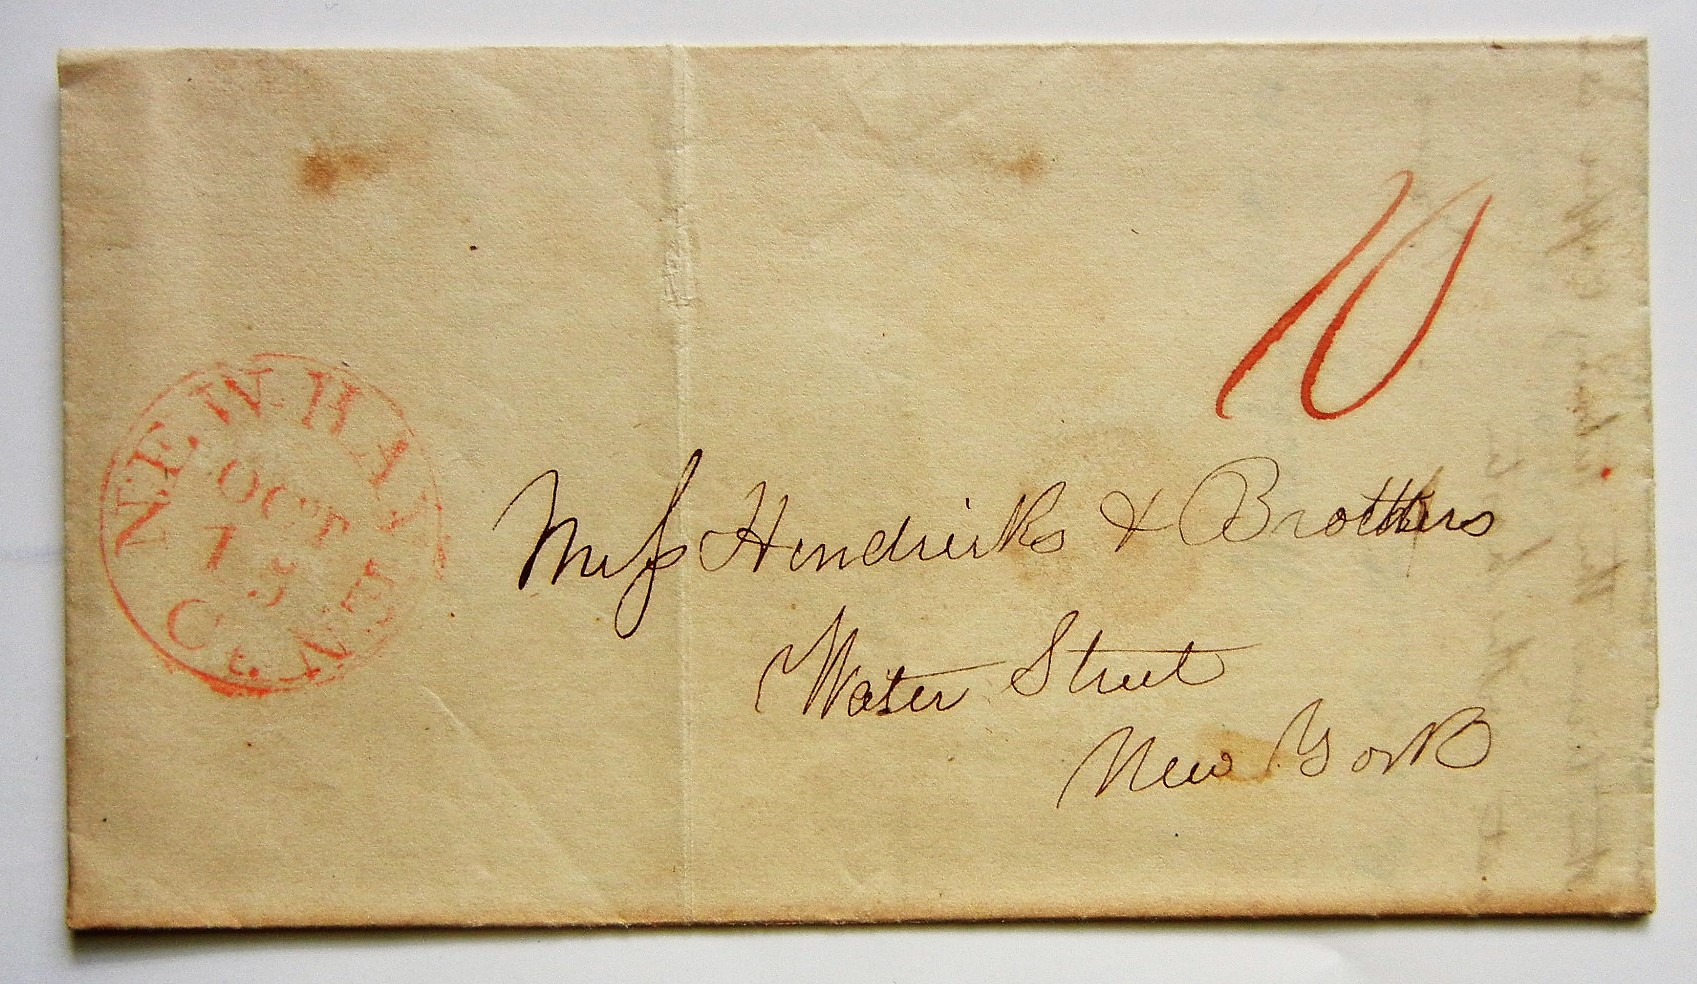 10
NEW-HAVEN
OCT
13
Ct.
Mess Hendricks & Brothers
Water Street
New York